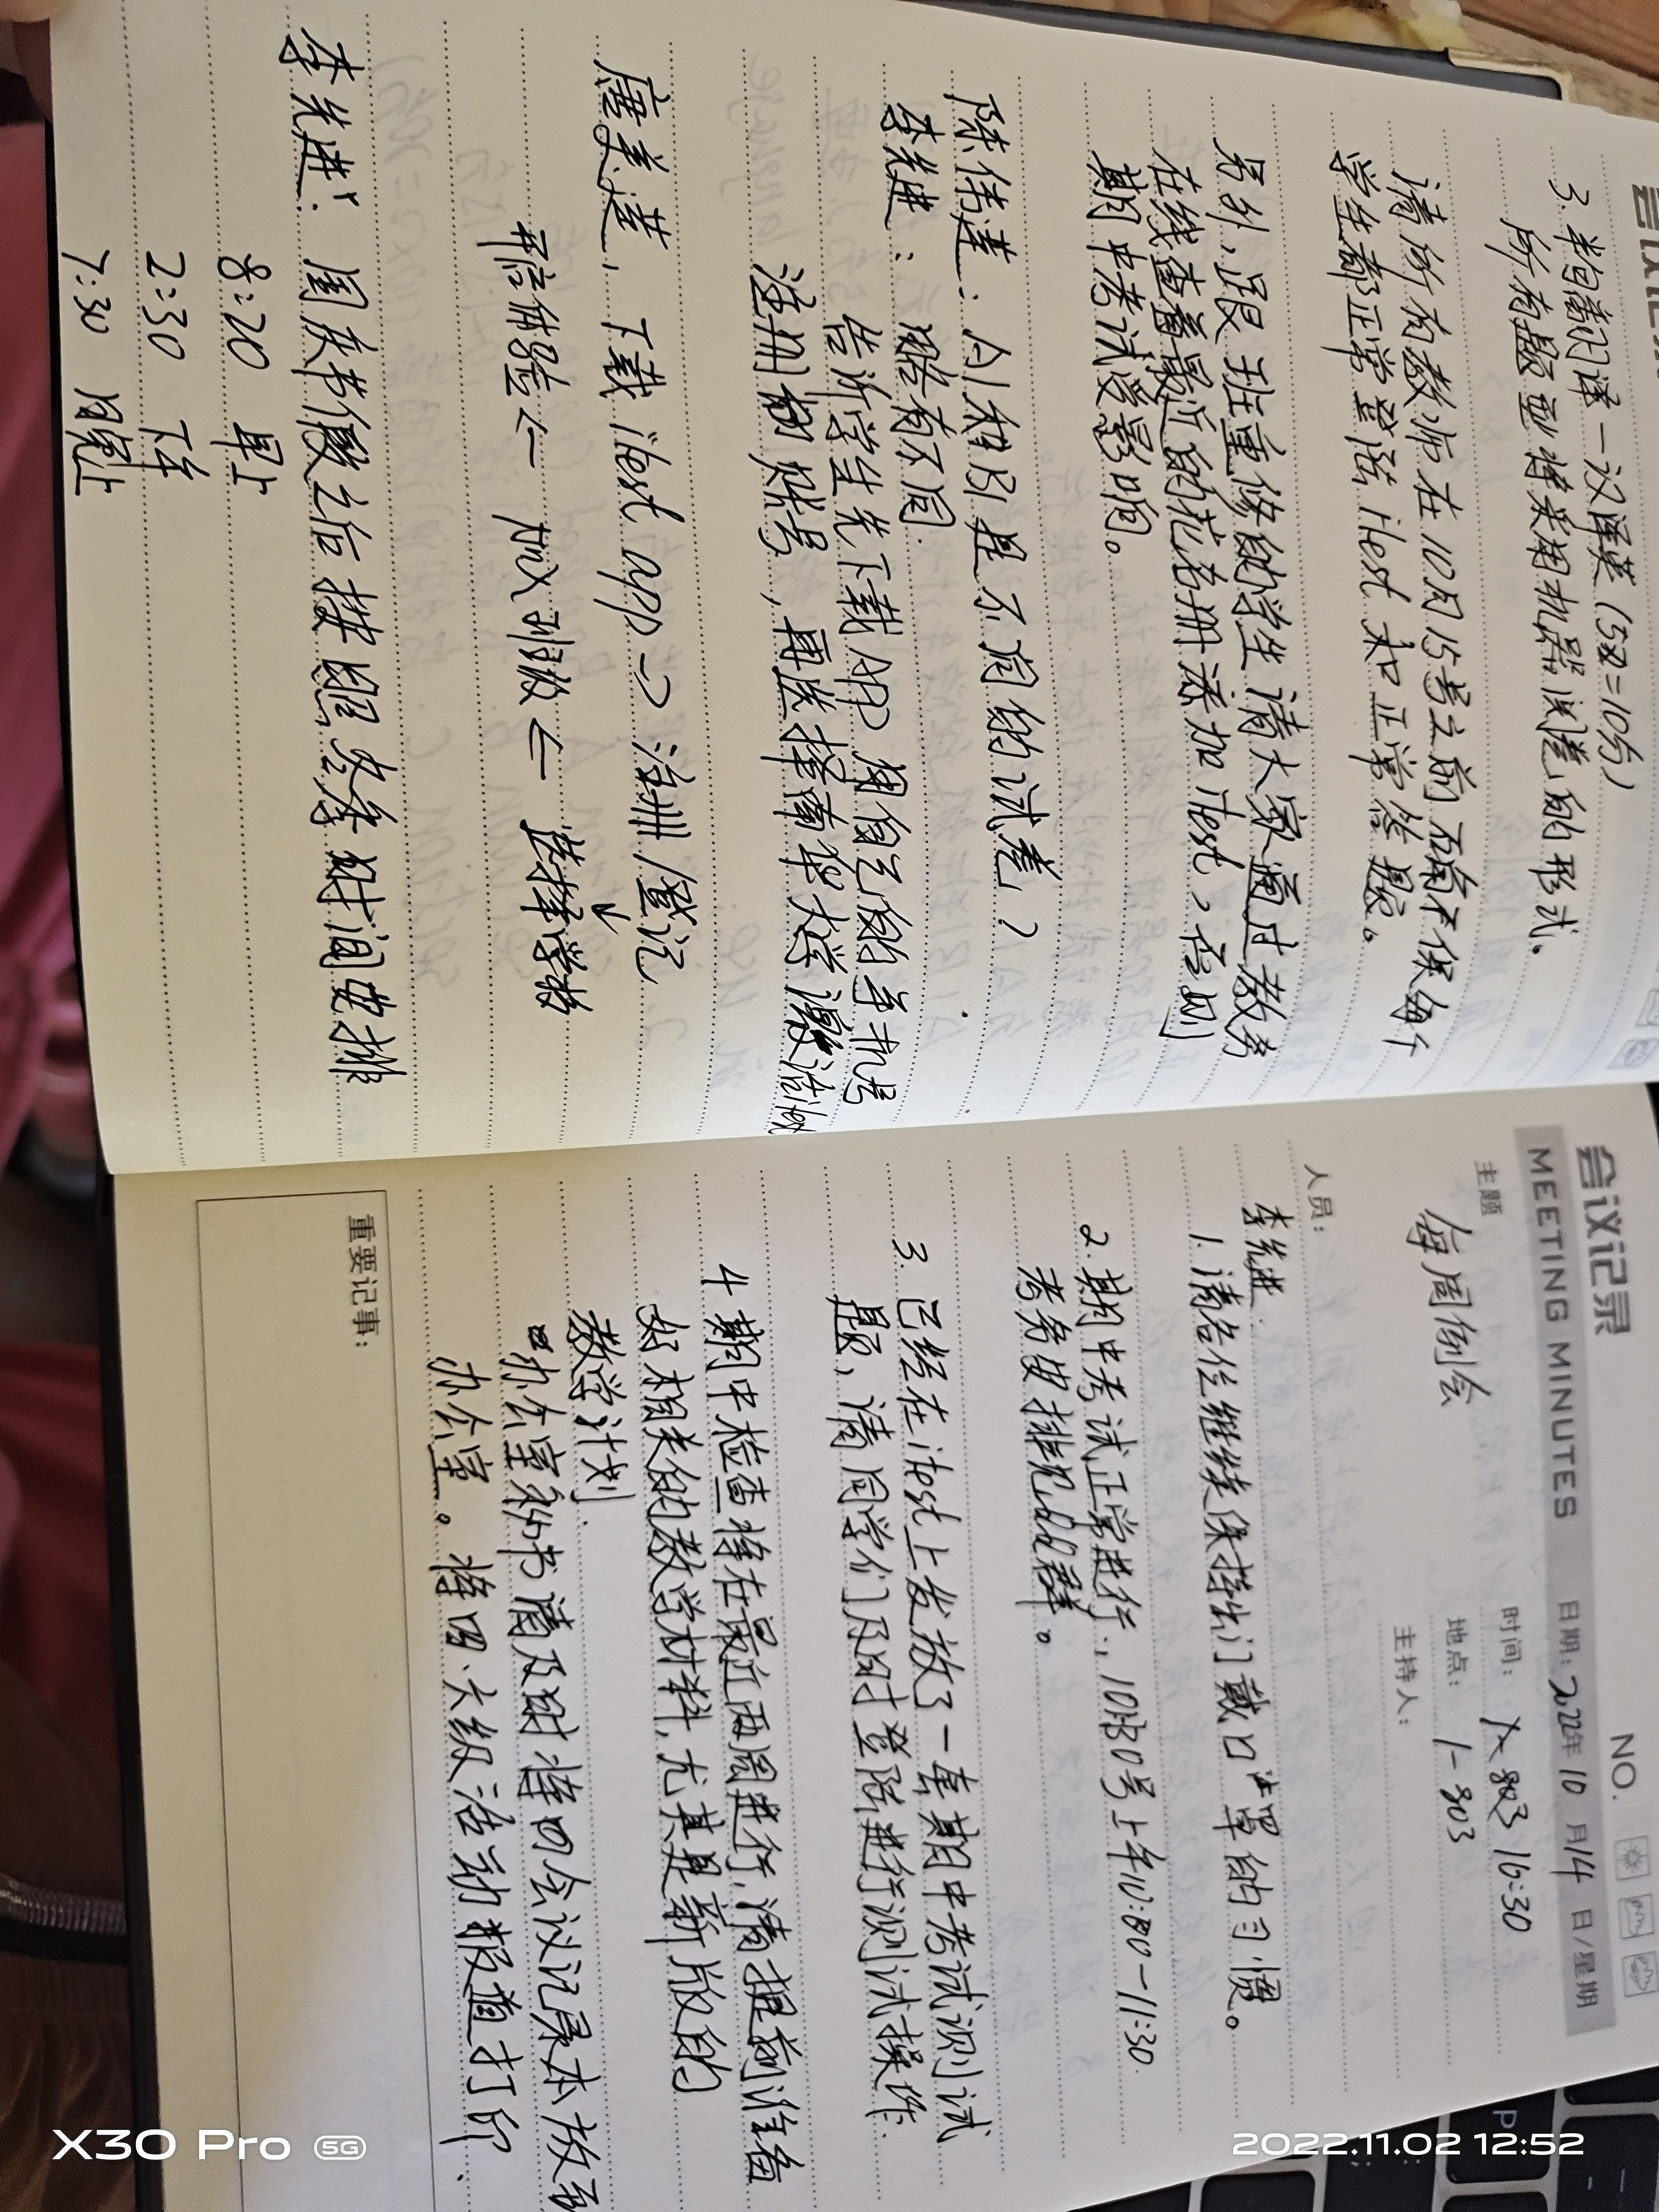 会议记录
3. 半句翻译－汉译英（5×2=10分）
所有题型将采用机器阅卷的形式、
请所有教师在10月15号之前确保每个
学生都正常登陆 itest 和正常答题。
另外，跟班重修的学生请大家通过教务
在线查看最近的花名册添加 itest，否则
期中考试受影响。
陈伟達： A1 和B1 是不同的试卷？
李先进： 略有不同.
告诉学生先下载 APP 用自己的手机号
注册制账号，再选择南华大学激活itest
康美達， 下载 itest app → 注册/登记
↓
邮箱验 ← 加入班级 ← 选择学校
李先进： 国庆节假之后接龙参赛时间安排
8:20 早上
2:30 下午
7:30 晚上
会议记录 NO.
MEETING MINUTES 日期: 2022年 10 月 14 日/星期
主题 每周例会 时间: 16:30
地点: 1-803
主持人:
人员:
李先进.
1. 请各位继续保持出门戴口罩的习惯。
2. 期中考试正常进行, 10月30号上午10:00-11:30
考务安排见QQ群。
3. 已经在itest上发放了一套期中考试测试
题、请同学们及时登陆进行测试操作.
4 期中检查将在最近两周进行, 请提前准备
好相关的教学材料, 尤其是新版的
教学计划.
办公室秘书请及时将四会议记录本放到
办公室。将四、六级活动报道打印.
重要记事:
X30 Pro 5G
2022.11.02 12:52